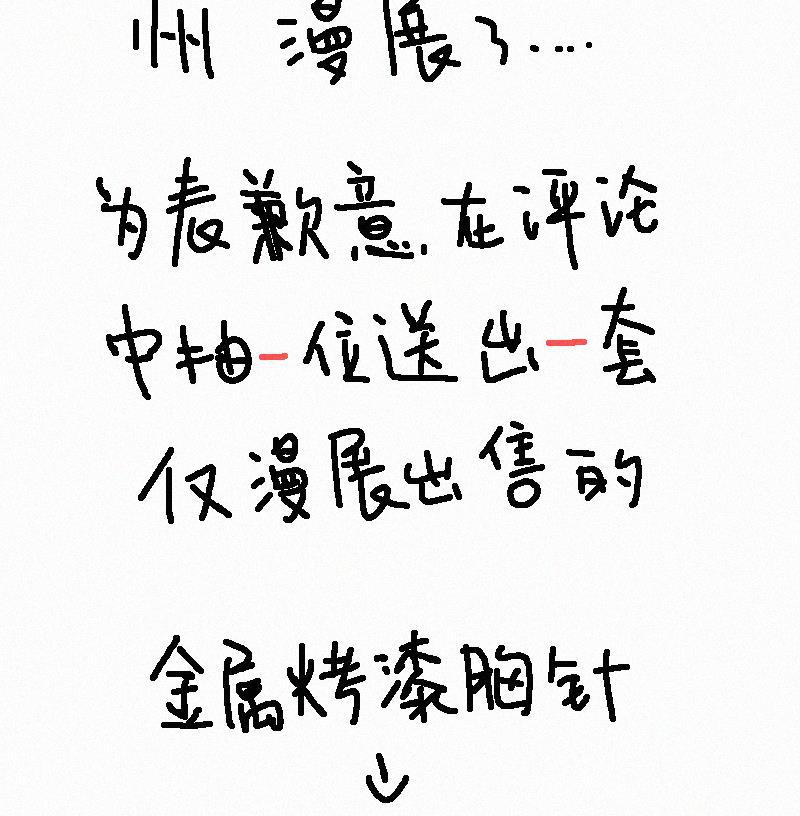 州 漫展了.....
为表歉意,在评论
中抽一位送出一套
仅漫展出售的
金属烤漆胸针
↓